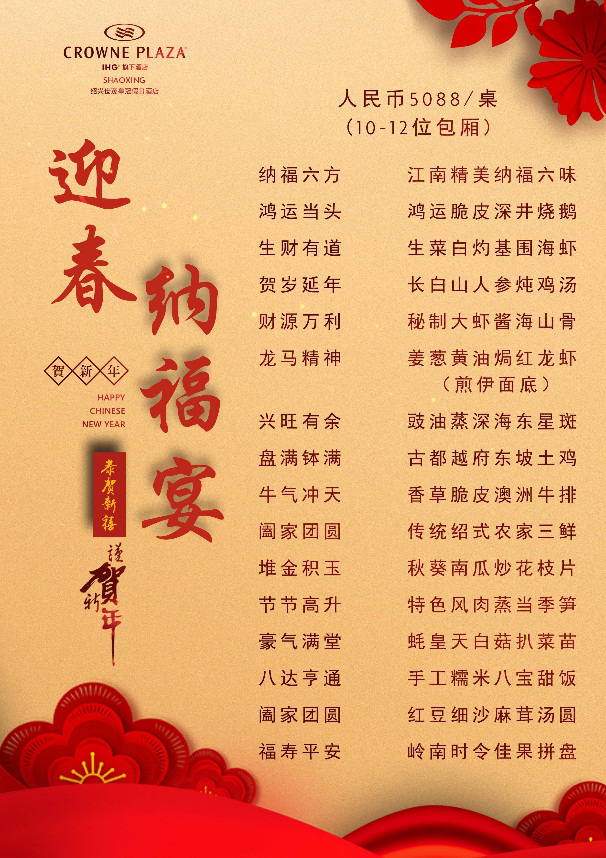 CROWNE PLAZA
IHG® 旗下酒店
SHAOXING
绍兴世茂皇冠假日酒店
人民币5088/桌
（10-12位包厢）
迎春
纳福宴
賀新年
HAPPY
CHINESE
NEW YEAR
恭贺新禧
謹賀新年
纳福六方 江南精美纳福六味
鸿运当头 鸿运脆皮深井烧鹅
生财有道 生菜白灼基围海虾
贺岁延年 长白山人参炖鸡汤
财源万利 秘制大虾酱海山骨
龙马精神 姜葱黄油焗红龙虾
（煎伊面底）
兴旺有余 豉油蒸深海东星斑
盘满钵满 古都越府东坡土鸡
牛气冲天 香草脆皮澳洲牛排
阖家团圆 传统绍式农家三鲜
堆金积玉 秋葵南瓜炒花枝片
节节高升 特色风肉蒸当季笋
豪气满堂 蚝皇天白菇扒菜苗
八达亨通 手工糯米八宝甜饭
阖家团圆 红豆细沙麻茸汤圆
福寿平安 岭南时令佳果拼盘